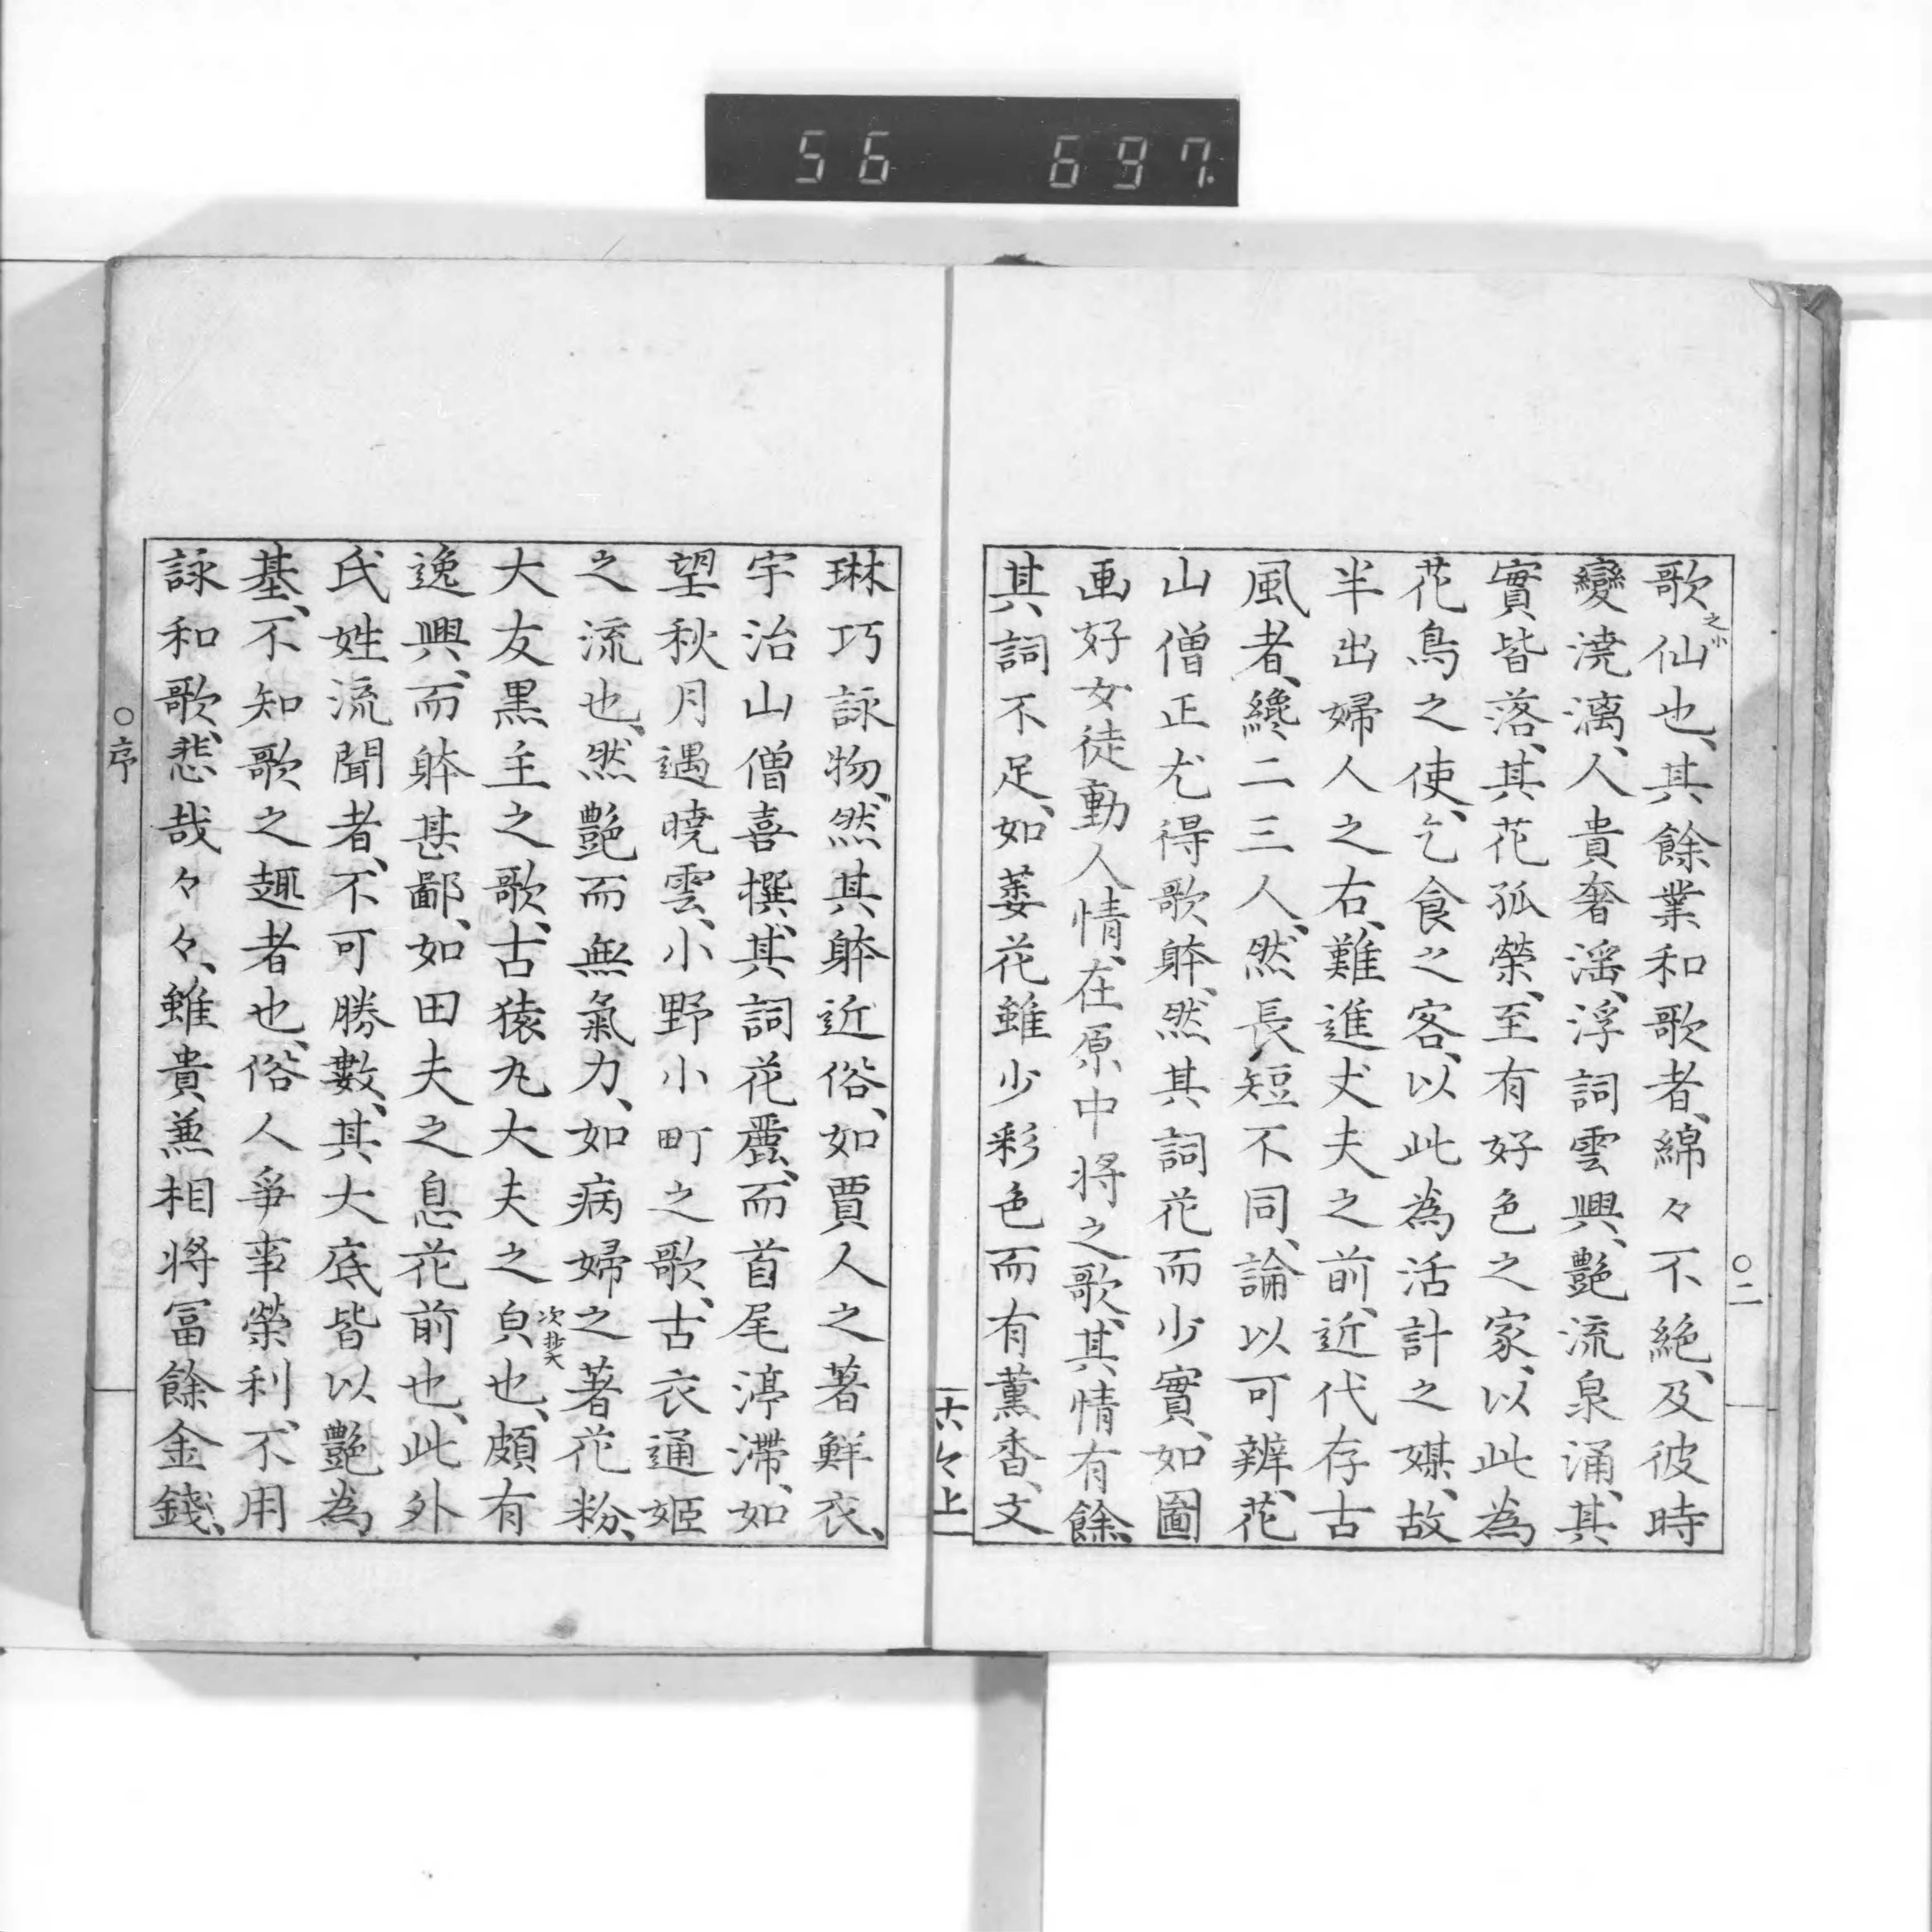 56 697.
歌仙也、其餘業和歌者、綿々不絶、及彼時
之小
變澆漓、人貴奢滛、浮詞雲興、艷流泉涌、其
實皆落、其花孤榮、至有好色之家、以此為
花鳥之使、乞食之客、以此為活計之媒、故
半出婦人之右、難進丈夫之前、近代存古
風者、纔二三人、然長短不同、論以可辨、花
山僧正尤得歌躰、然其詞花而少實、如圖
画好女徒動人情、在原中将之歌、其情有餘、
其詞不足、如萎花雖少彩色而有薫香、文
○二
六々上
琳巧詠物、然其躰近俗、如賈人之著鮮衣、
宇治山僧喜撰、其詞花麗、而首尾渟滯、如
望秋月遇暁雲、小野小町之歌、古衣通姫
之流也、然艷而無氣力、如病婦之著花粉、
大友黒主之歌、古猿丸大夫之也、頗有
逸興、而躰甚鄙、如田夫之息花前也、此外
氏姓流聞者、不可勝數、其大底皆以艷為
基、不知歌之趣者也、俗人爭事榮利、不用
詠和歌、悲哉々々、雖貴兼相将冨餘金錢、
○序